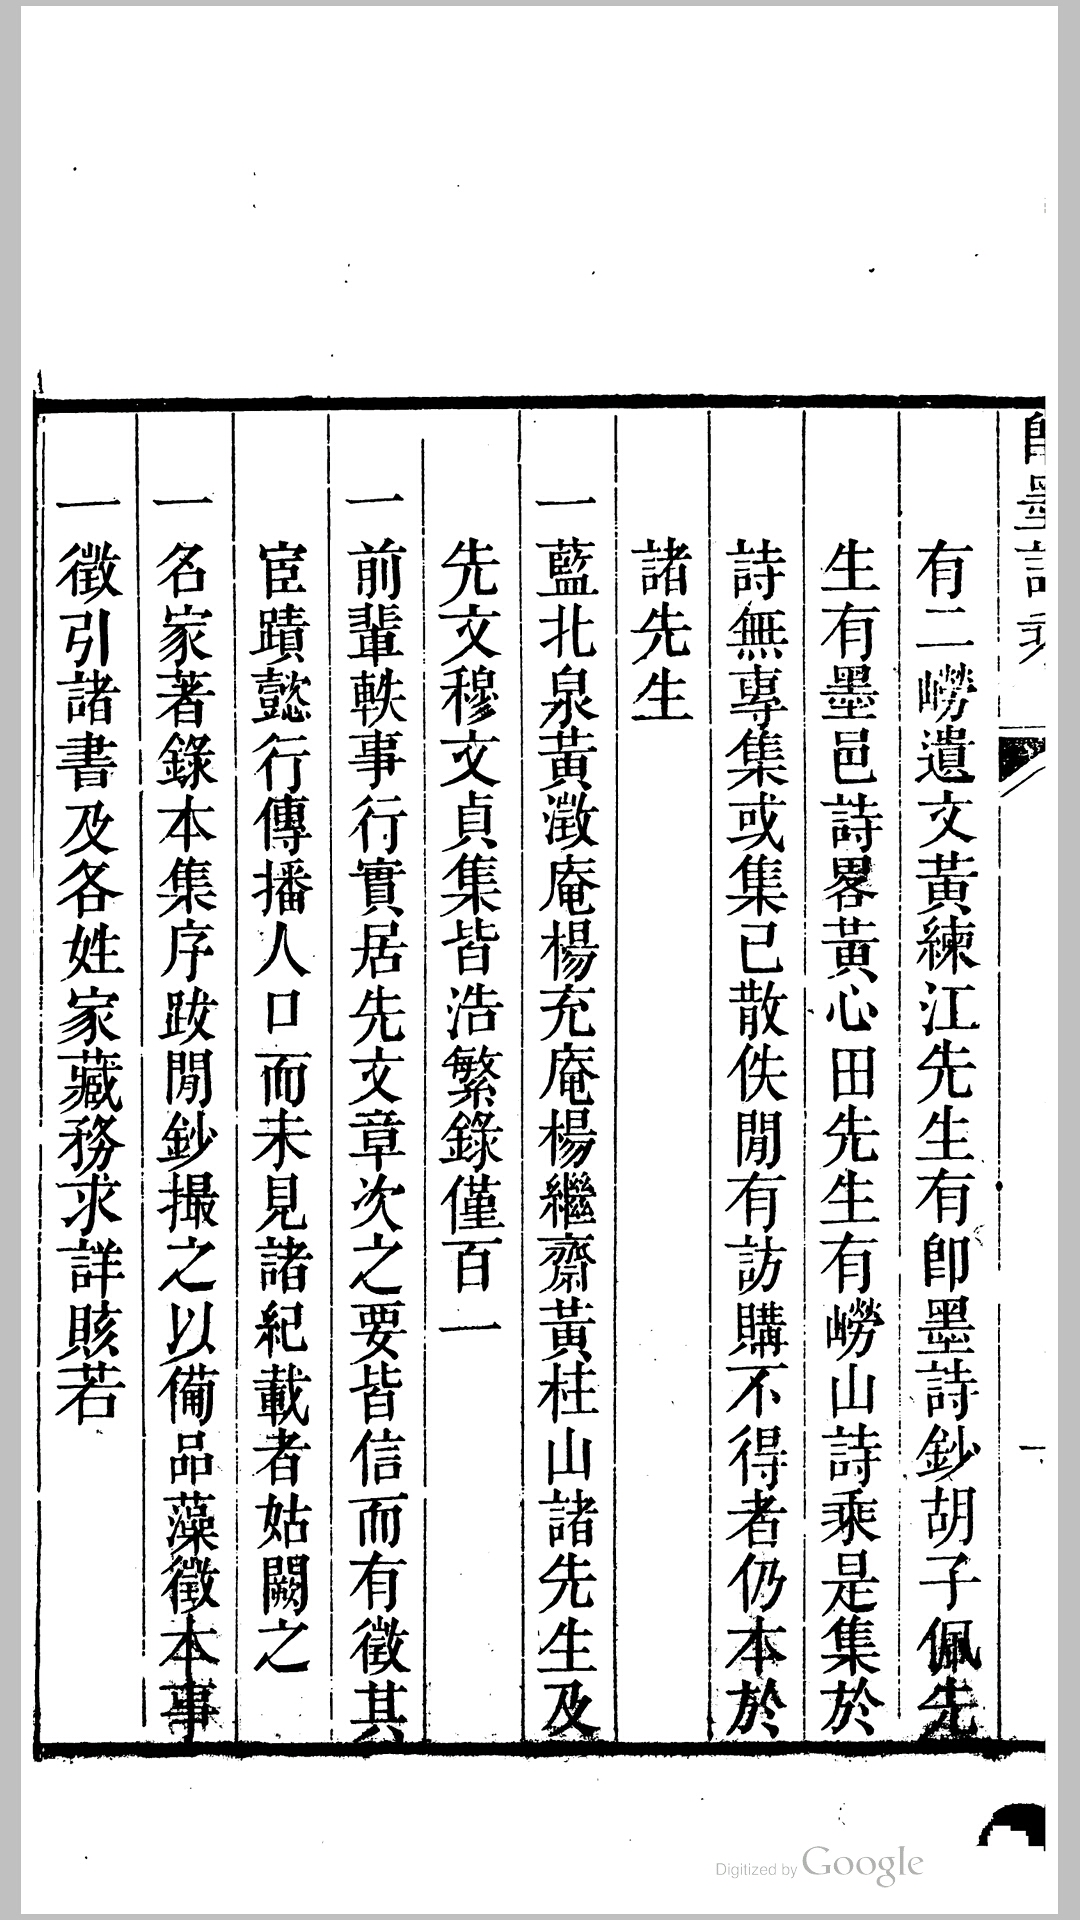 有二嶗遺文黃練江先生有卽墨詩鈔胡子佩先
生有墨邑詩畧黃心田先生有嶗山詩乘是集於
詩無專集或集已散佚閒有訪購不得者仍本於
諸先生
一藍北泉黃澂庵楊充庵楊繼齋黃柱山諸先生及
先文穆文貞集皆浩繁錄僅百一
一前輩軼事行實居先文章次之要皆信而有徵其
宦蹟懿行傳播人口而未見諸紀載者姑闕之
一名家著錄本集序跋閒鈔撮之以備品藻徵本事
一徵引諸書及各姓家藏務求詳賅若
Digitized by Google